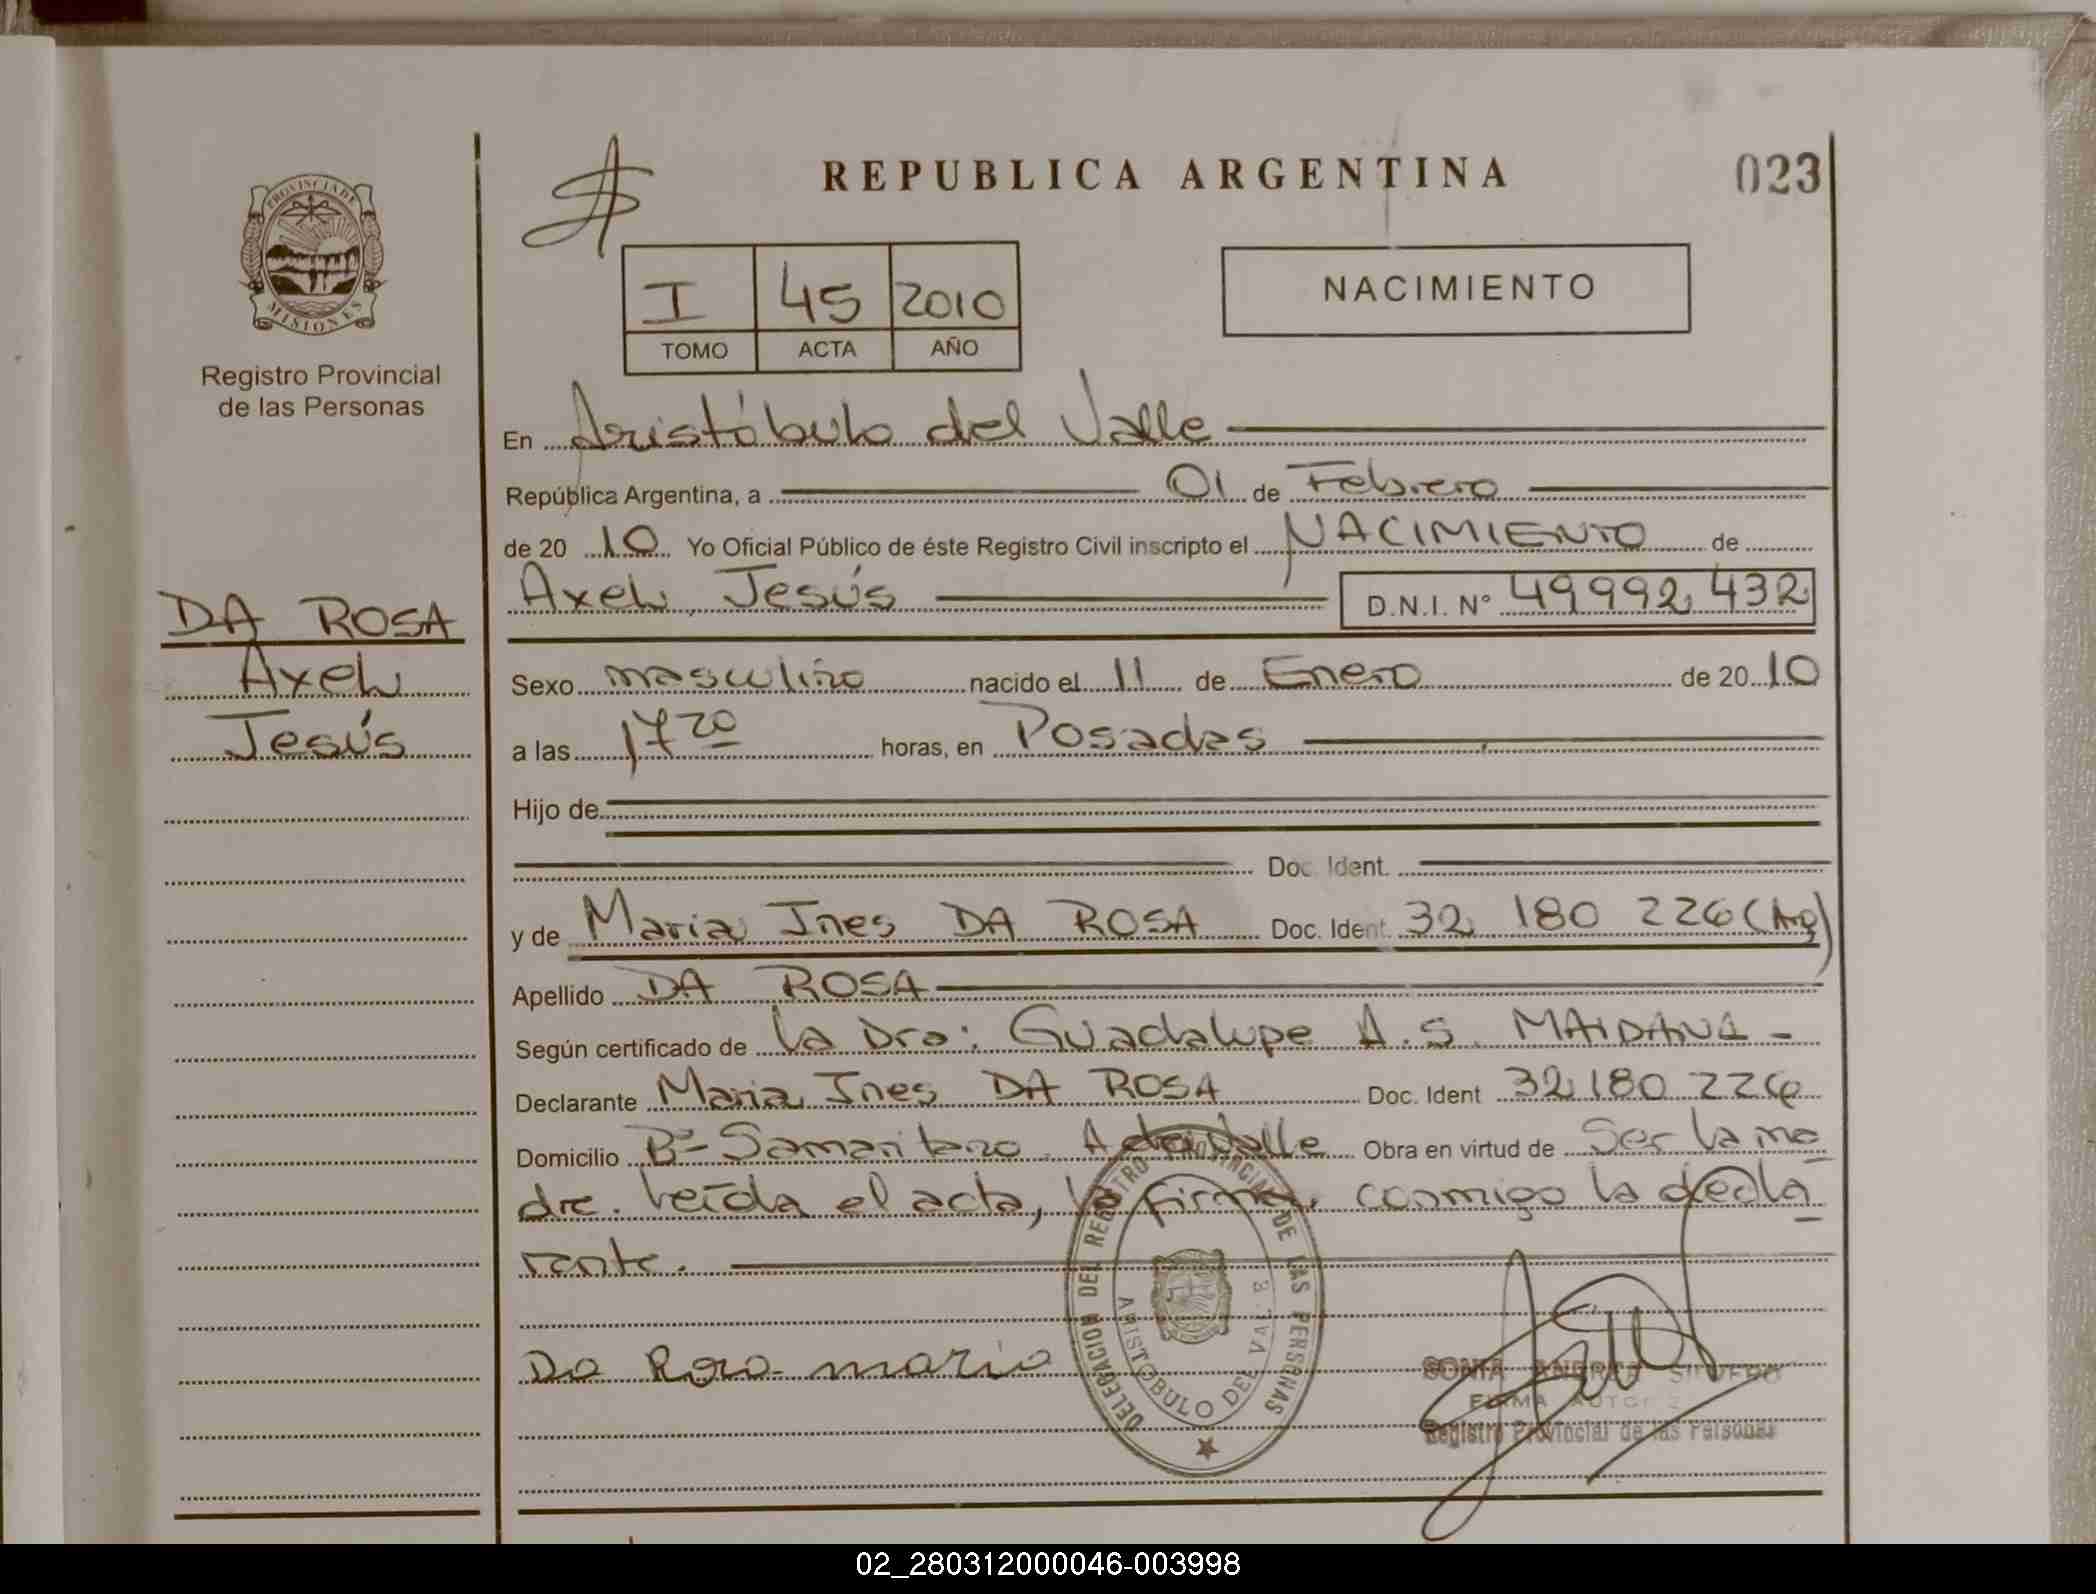 REPUBLICA ARGENTINA
023
PROVINCIA DE
MISIONES
Registro Provincial
de las Personas
I 45 2010
TOMO ACTA AÑO
NACIMIENTO
En Aristóbulo del Valle
República Argentina, a 01 de Febrero
de 20 10 Yo Oficial Público de éste Registro Civil inscripto el NACIMIENTO de
Axel Jesús D.N.I. N° 49992432
DA ROSA
Axel
Jesús
Sexo masculino nacido el 11 de Enero de 20 10
a las 17 20 horas, en Posadas
Hijo de
Doc. Ident.
y de Maria Ines DA ROSA Doc. Ident. 32 180 226 (Arg)
Apellido DA ROSA
Según certificado de la Dra: Guadalupe A. S. MAIDANA -
Declarante Maria Ines DA ROSA Doc. Ident 32 180 226
Domicilio B° Samaritano A del Valle Obra en virtud de Ser la ma
dre. Leída el acta, la firma, conmigo la decla
rante.
DELEGACION DEL REGISTRO PROVINCIAL DE LAS PERSONAS
ARISTOBULO DEL VALLE
Da Rosa maria
SONIA ANDREA
FIRMA
Registro Provincial de las Personas
02_280312000046-003998